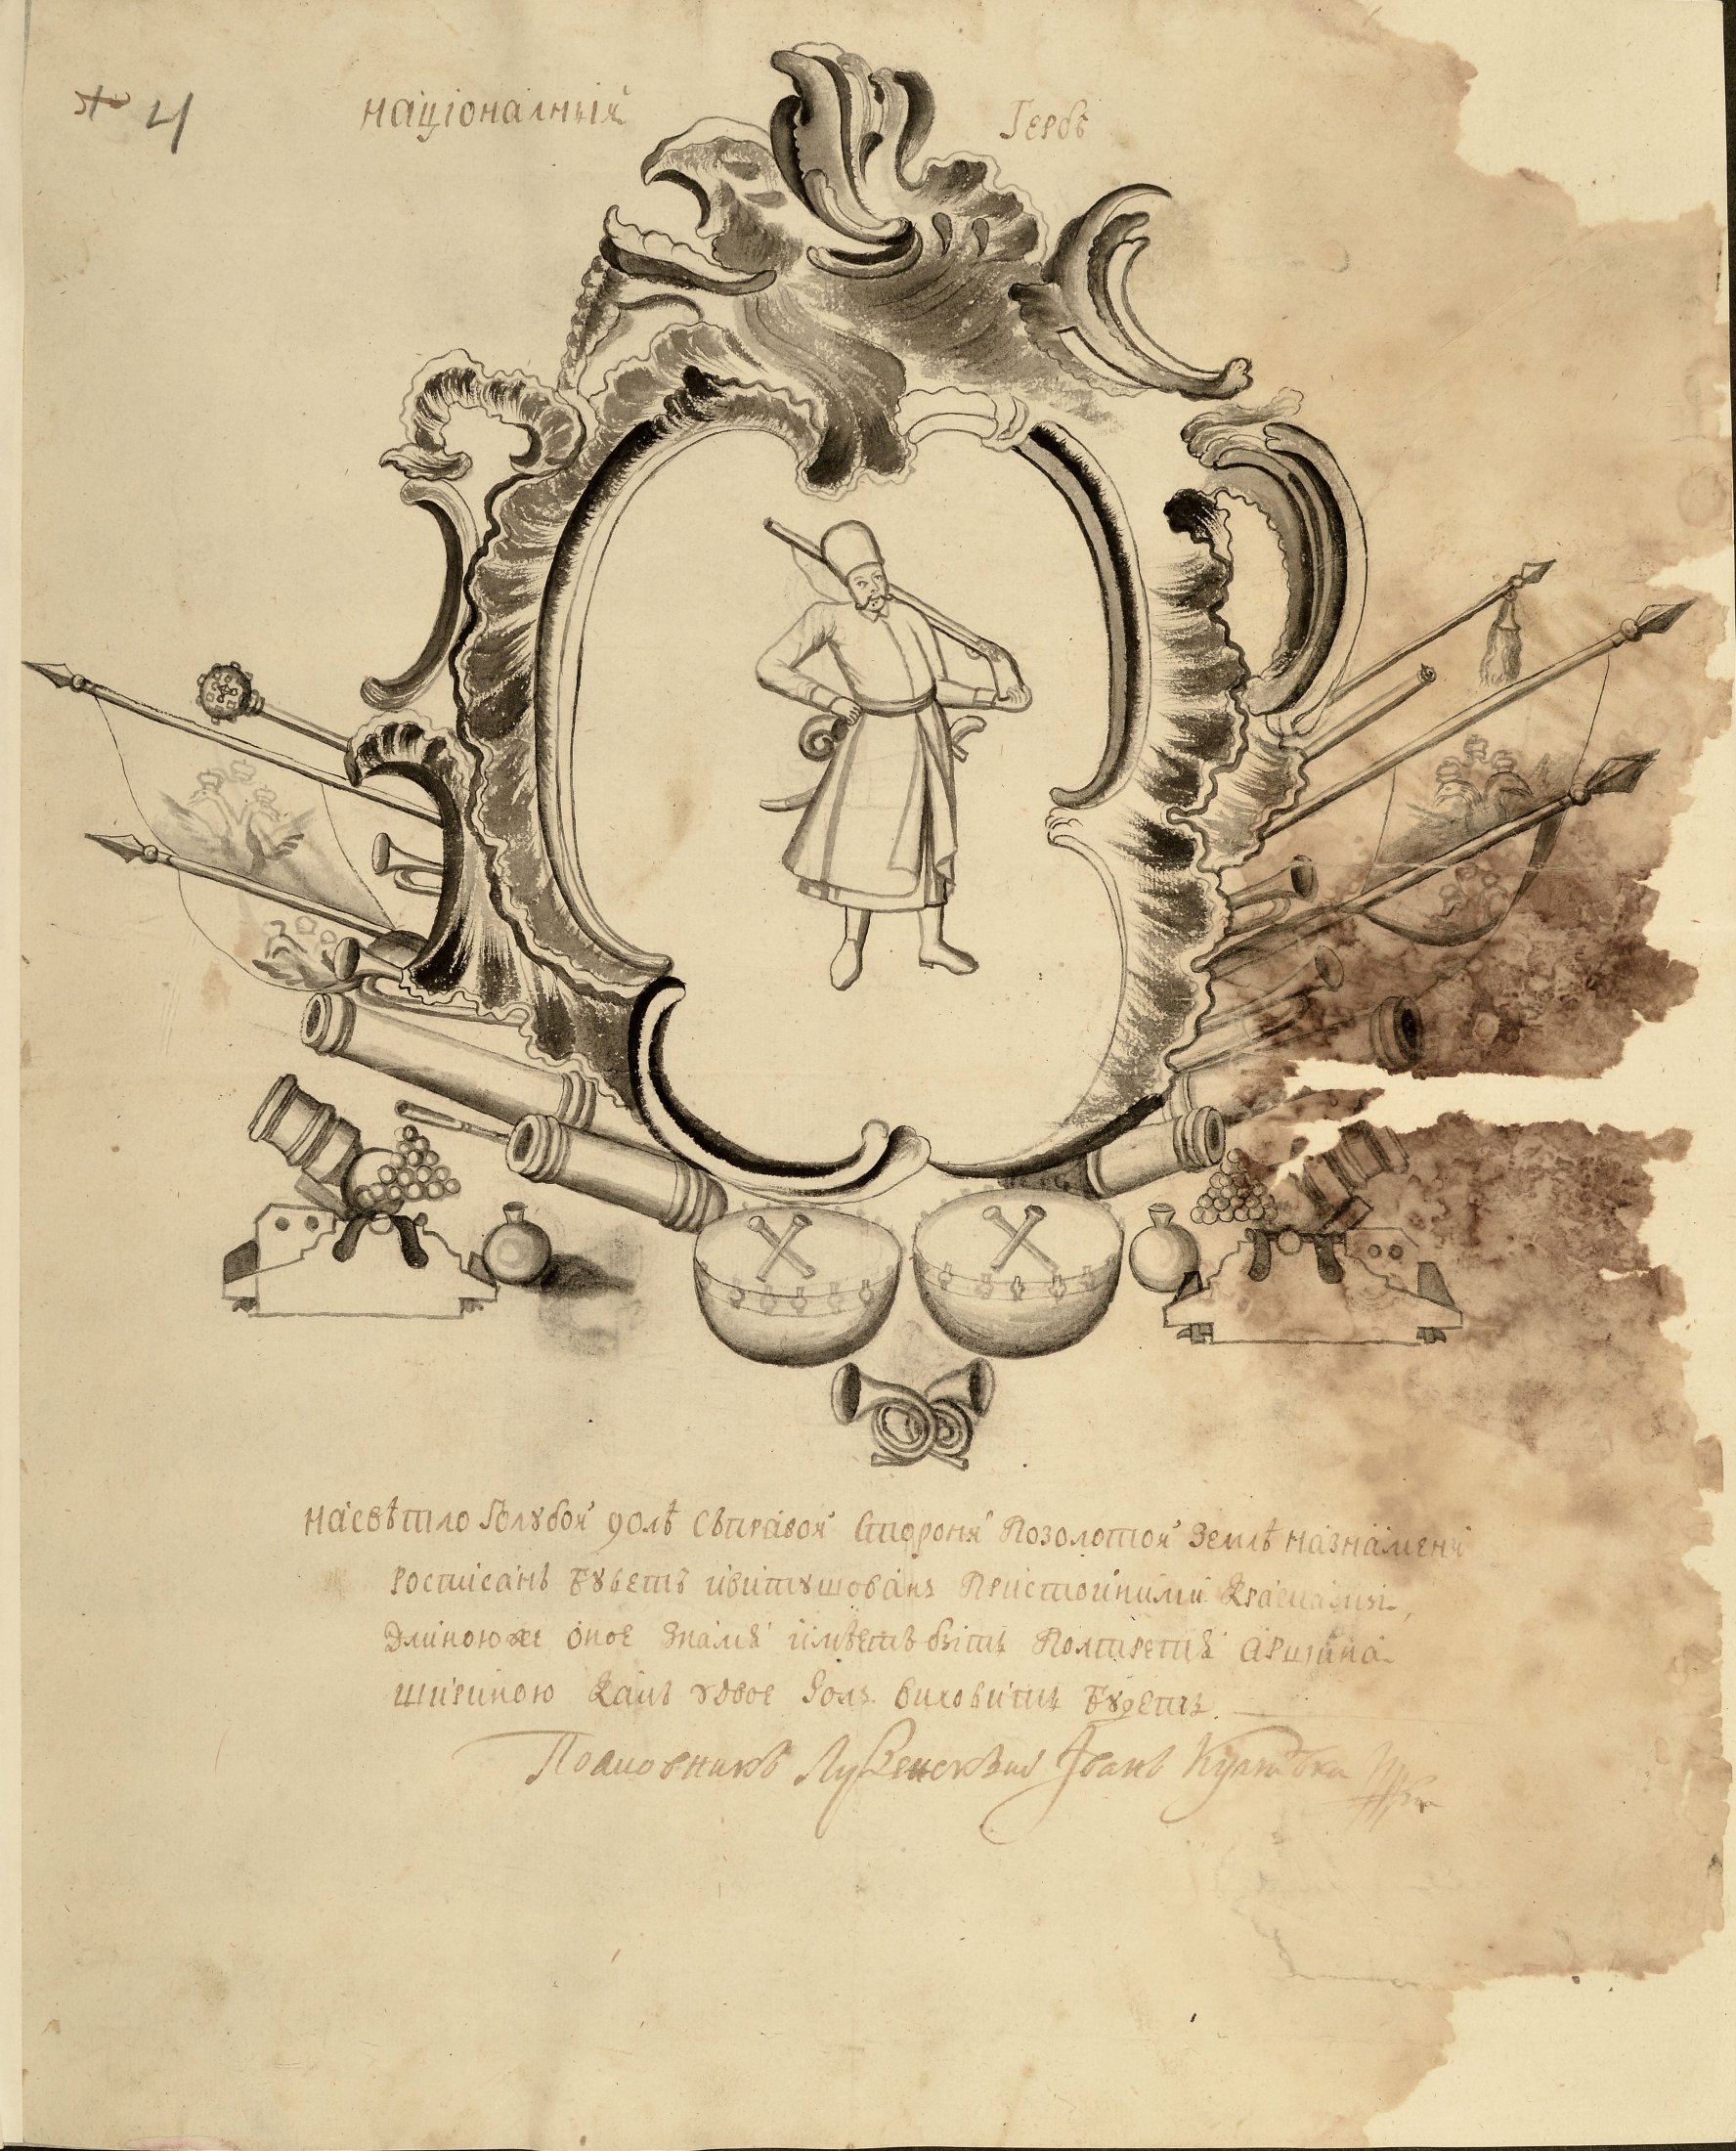 4
Націоналный Гербъ
На свѣтло голубой полѣ съ правой стороны По золотой Землѣ на знамени
росписанъ будетъ и витушованъ Пристойними красками,
Длиною же оное Знамя имѣетъ быть Полтретя аршина
шириною какъ удвое Полъ виховитъ будетъ.
Полковникъ Лубенскъий Іванъ Кулябка